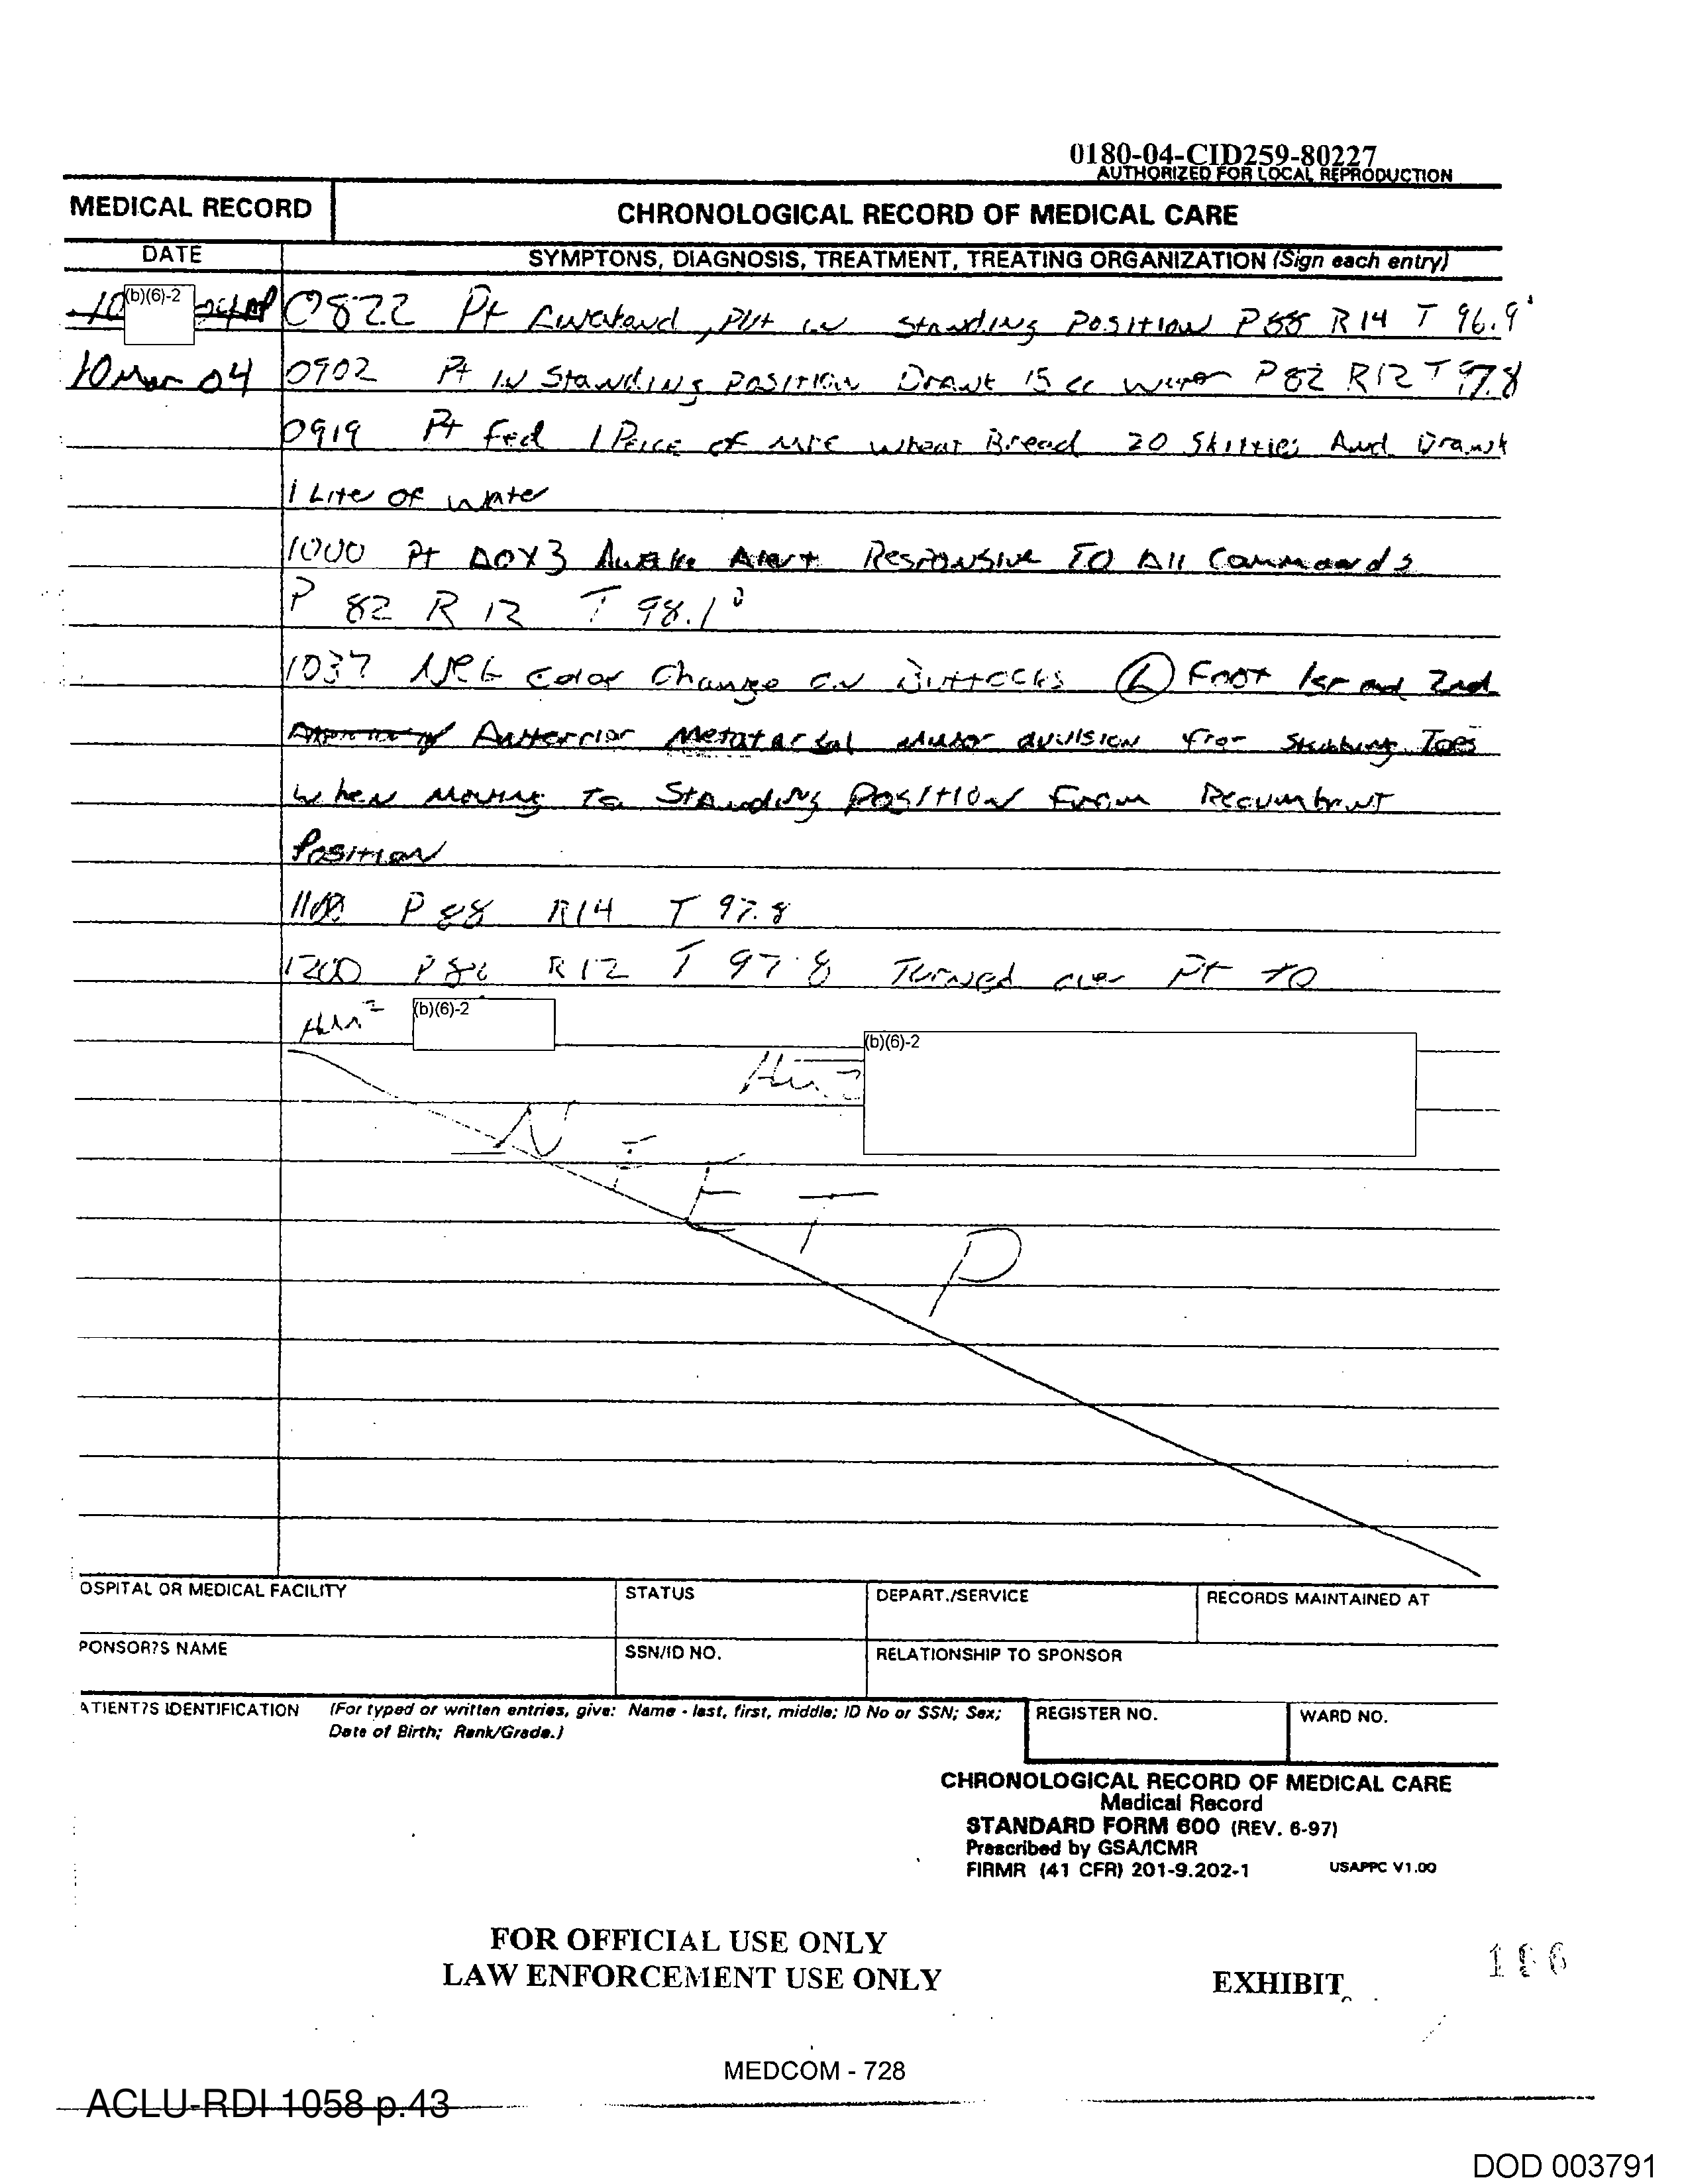 0180-04-CID259-80227
AUTHORIZED FOR LOCAL REPRODUCTION
MEDICAL RECORD
CHRONOLOGICAL RECORD OF MEDICAL CARE
DATE
SYMPTONS, DIAGNOSIS, TREATMENT, TREATING ORGANIZATION (Sign each entry)
10 (b)(6)-2 0822 Pt Awakend, Put in Standing Position P 88 R 14 T 96.9°
10 Mar 04 0902 Pt IN Standing Position Drank 15 cc water P 82 R12 T 97.8
0919 Pt Fed 1 Peice of MRE Wheat Bread 20 Skittles And Drank
1 Liter OF Water
1000 Pt AOX3 Awake Alert Responsive TO All Commands
P 82 R 12 T 98.1°
1037 Neg Color Change on Buttocks (L) Foot 1st and 2nd
Antterrior Metatarsal minor avulsion from Stubbing Toes
When Moving To Standing Position From Recumbent
Position
1100 P 88 R14 T 97.8
1200 P R 12 T 97.8 Turned over Pt to
HM2 (b)(6)-2
HM3 (b)(6)-2
OSPITAL OR MEDICAL FACILITY
STATUS
DEPART./SERVICE
RECORDS MAINTAINED AT
PONSOR?S NAME
SSN/ID NO.
RELATIONSHIP TO SPONSOR
ATIENT?S IDENTIFICATION (For typed or written entries, give: Name - last, first, middle; ID No or SSN; Sex;
Date of Birth; Rank/Grade.)
REGISTER NO.
WARD NO.
CHRONOLOGICAL RECORD OF MEDICAL CARE
Medical Record
STANDARD FORM 600 (REV. 6-97)
Prescribed by GSA/ICMR
FIRMR (41 CFR) 201-9.202-1 USAPPC V1.00
FOR OFFICIAL USE ONLY
LAW ENFORCEMENT USE ONLY
EXHIBIT
MEDCOM - 728
ACLU-RDI 1058 p.43
DOD 003791